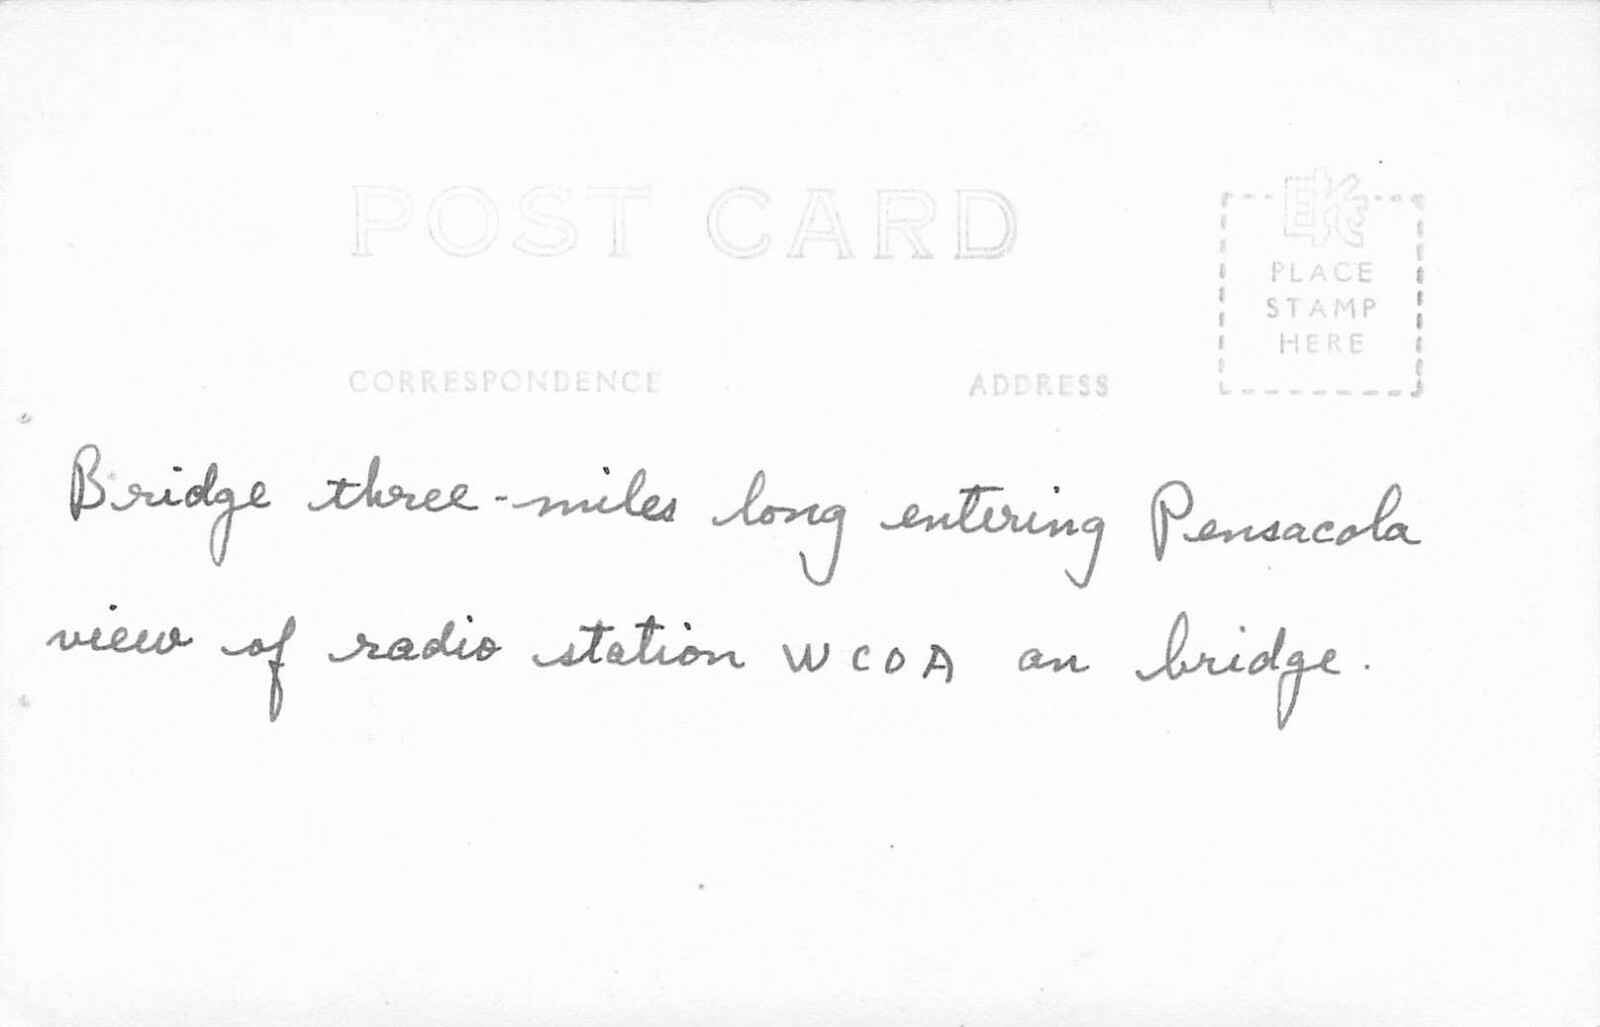 POST CARD
EKC
PLACE
STAMP
HERE
CORRESPONDENCE
ADDRESS
Bridge three-miles long entering Pensacola
view of radio station WCOA an bridge.